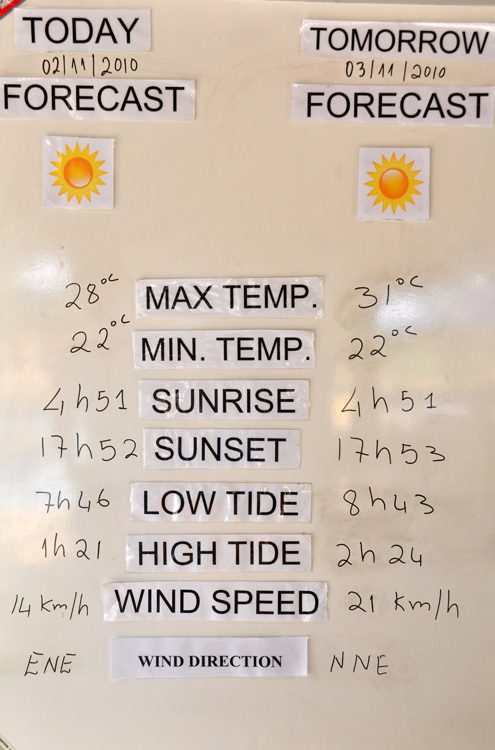 TODAY TOMORROW
02/11/2010 03/11/2010
FORECAST FORECAST
28°C MAX TEMP. 31°C
22°C MIN. TEMP. 22°C
4h51 SUNRISE 4h51
17h52 SUNSET 17h53
7h46 LOW TIDE 8h43
1h21 HIGH TIDE 2h24
14 km/h WIND SPEED 21 km/h
ENE WIND DIRECTION NNE